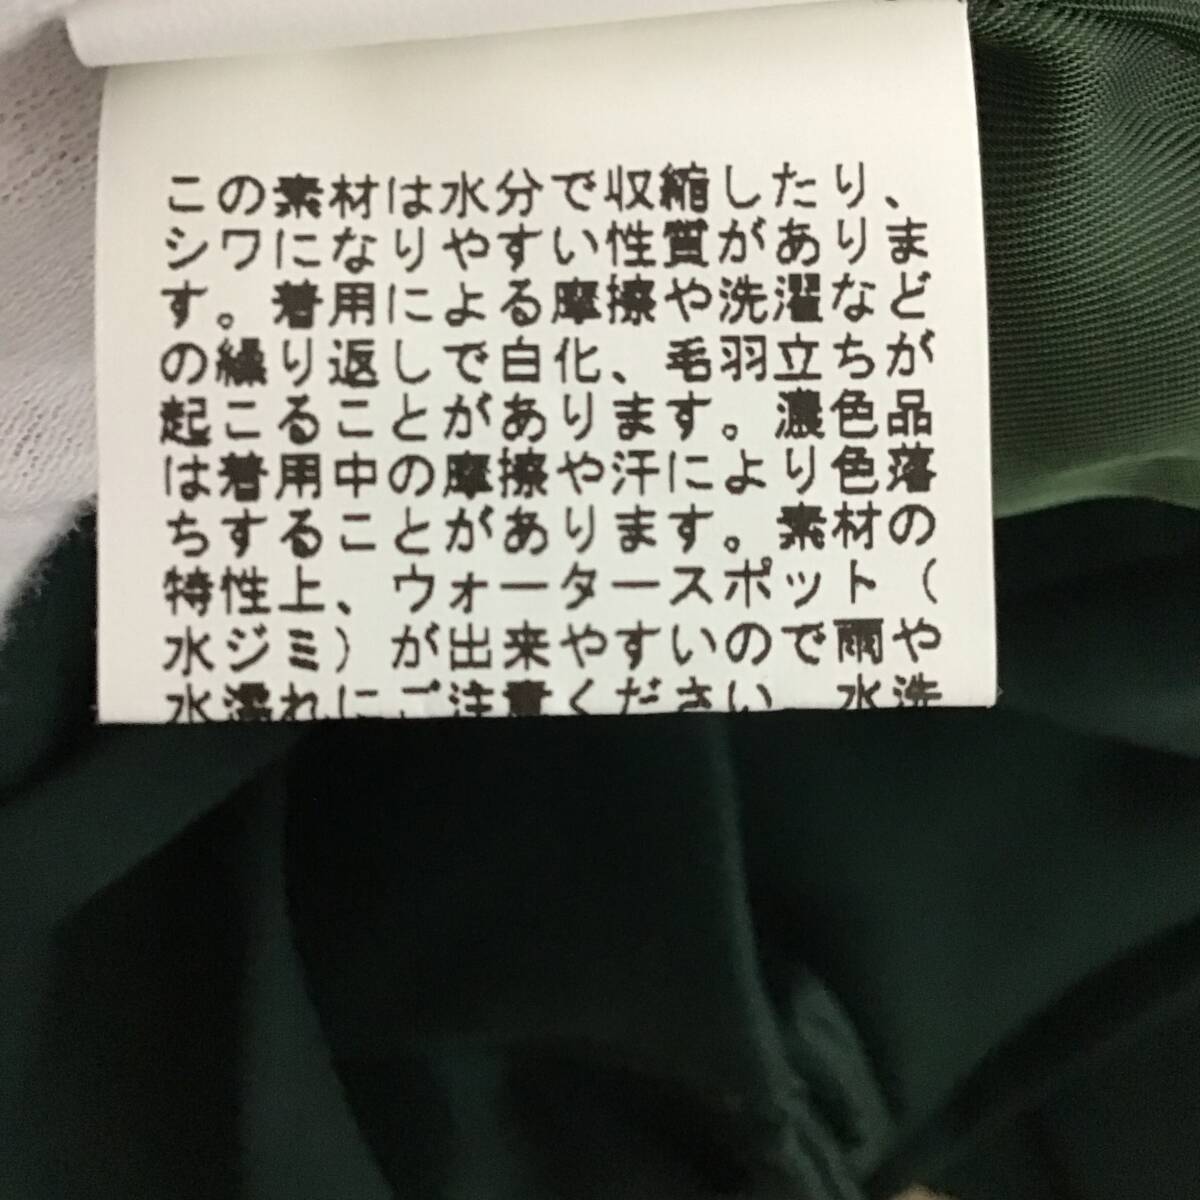 この素材は水分で収縮したり、
シワになりやすい性質がありま
す。着用による摩擦や洗濯など
の繰り返しで白化、毛羽立ちが
起こることがあります。濃色品
は着用中の摩擦や汗により色落
ちすることがあります。素材の
特性上、ウォータースポット（
水ジミ）が出来やすいので雨や
水濡れにご注意ください。水洗